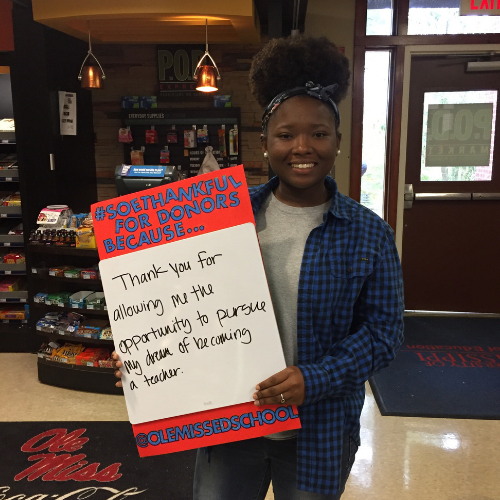 EXIT
P.O.D.
P.O.D.
#SOETHANKFUL
FOR DONORS
BECAUSE...
Thank you for
allowing me the
opportunity to pursue
my dream of becoming
a teacher.
@OLEMISSEDSCHOOL
Ole Miss
Coca-Cola